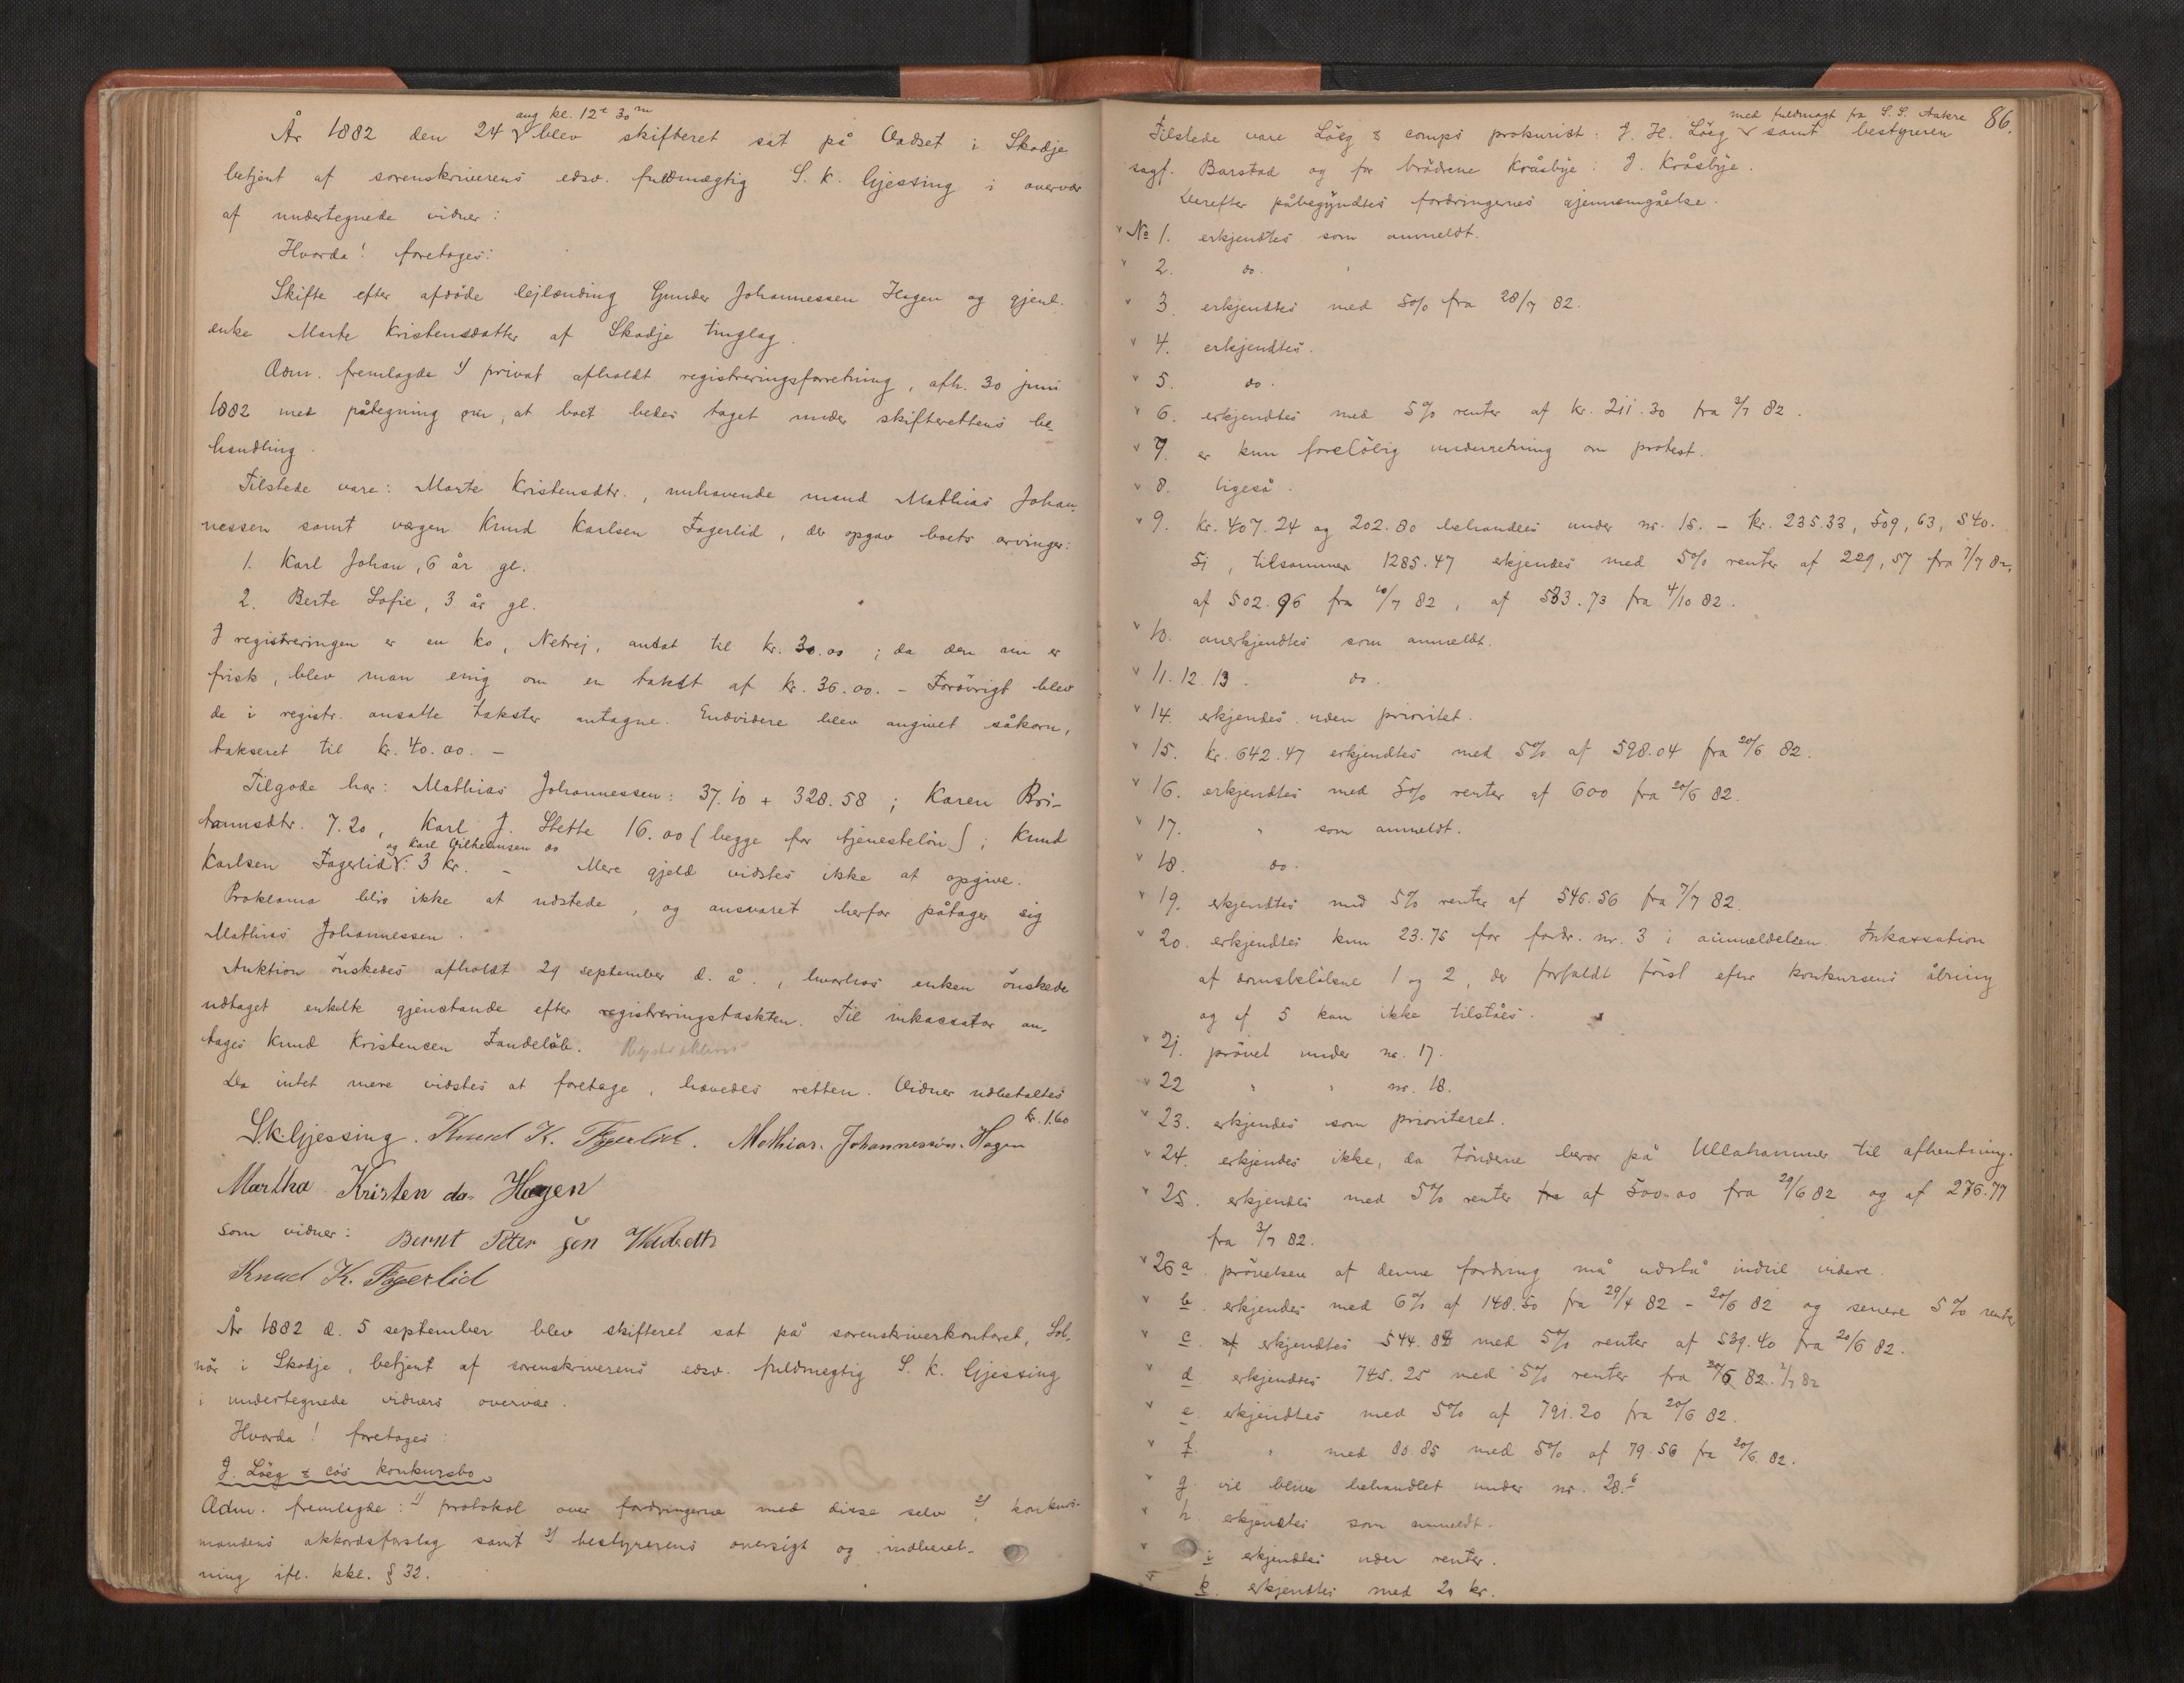 aug kl. 12t 30m
År 1882 den 24 blev skifteret sat på Vadset i Skodje
betjent af sorenskriverens edsv. fuldmægtig S. K. Gjessing i overvær
af undertegnede vidner:
Hvorda! foretoges:
Skifte efter afdöde lejlending Gunder Johannessen Hagen og gjenl.
enke Marte Kristensdatter af Skodje tinglag.
Adm. fremlagde 1) privat afholdt registreringsforretning, afh. 30 juni
1882 med påtegning om, at boet bedes taget under skifterettens be-
handling.
Tilstede vare: Marte Kristensdtr., nuhavende mand Mathias Johan-
nessen samt vægen Knud Karlsen Fagerlid, der opgav boets arvinger:
1. Karl Johan, 6 år gl.
2. Berte Sofie, 3 år gl.
I registreringen er en ko, Netrej, ansat til kr. 30.00; da den nu er
frisk, blev man enig om en takst af kr. 36.00. - Forövrigt blev
de i registr. ansatte takster antagne. Endvidere blev angivet såkorn,
takseret til kr. 40.00. -
Tilgode har: Mathias Johannessen: 37.10 + 328.58; Karen Bri-
tannsdtr. 7.20, Karl J. Stette 16.00 (begge for tjenestelön); Knud
og Karl Vilhelmsen do
Karlsen Fagerlid: 3 kr. - Mere gjeld vidstes ikke at opgive.
Proklama blir ikke at udstede, og ansvaret herfor påtager sig
Mathias Johannessen.
Auktion önskedes afholdt 29 september d. å., hvorhos enken önskede
udtaget enkelte gjenstande efter registreringstaksten. Til inkassator an-
tages Knud Kristensen Fandelöb.
Da intet mere vidstes at foretage, hævedes retten. Vidner udbetaltes
kr. 1.60
S.K. Gjessing. Knud K. Fagerlid. Mathias Johannessøn Hagen
Martha Kristen da Hagen
som vidner: Bernt Peter Jon Vadseth
Knud K. Fagerlid
År 1882 d. 5 september blev skifteret sat på sorenskriverkontoret, Sol-
nör i Skodje, betjent af sorenskriverens edsv. fuldmegtig S. K. Gjessing
i undertegnede vidners overvær.
Hvorda! foretoges:
J. Löeg & co's konkursbo
Adm. fremlagde: 1) protokol over fordringerne med disse selv 2) konkurs-
mandens akkordsforslag samt 3) bestyrerens oversigt og indberet-
ning ifl. kkl. § 32.
86.
med fuldmagt fra S. S. Aakre
Tilstede vare Löeg & comps prokurist: J. H. Löeg samt bestyreren
sagf. Barstad og for brödrene Kråsbye: J. Kråsbye.
Derefter påbegyndtes fordringernes gjennemgåelse.
No 1. erkjendtes som anmeldt.
2. do.
3. erkjendtes med 5% fra 28/7 82.
4. erkjendtes.
5. do.
6. erkjendtes med 5% renter af kr. 211.30 fra 3/7 82.
7. er kun forelöbig underretning om protest.
8. ligeså.
9. kr. 407.24 og 202.80 behandles under nr. 15. - kr. 235.33, 509,63, 540.
51, tilsammen 1285.47 erkjendes med 5% renter af 229,57 fra 7/7 82,
af 502.96 fra 10/7 82, af 533.73 fra 4/10 82.
10. anerkjendtes som anmeldt.
11. 12. 13. do.
14. erkjendes uden prioritet.
15. kr. 642.47 erkjendtes med 5% af 598.04 fra 20/6 82.
16. erkjendtes med 5% renter af 600 fra 20/6 82.
17. " som anmeldt.
18. do.
19. erkjendtes med 5% renter af 546.56 fra 7/7 82.
20. erkjendtes kun 23.75 for fordr. nr. 3 i anmeldelsen. Inkassation
af domsbelöbene 1 og 2, der forfaldt först efter konkursens åbning
og af 5 kan ikke tilståes.
21. prövet under nr. 17.
22 " " nr. 18.
23. erkjendes som prioriteret.
24. erkjendes ikke, da töndene beror på Ullahammer til afhentning.
25. erkjendes med 5% renter fra af 500.00 fra 29/6 82 og af 276.77
fra 3/7 82.
26 a. prövelsen af denne fordring må udstå indtil videre.
b. erkjendes med 6% af 148.50 fra 29/4 82 - 20/6 82 og senere 5% renter
c. af erkjendtes 544.88 med 5% renter af 539.40 fra 20/6 82.
d. erkjendtes 745.25 med 5% renter fra 20/6 82. 2/7 82
e. erkjendtes med 5% af 791.20 fra 20/6 82.
f. " med 80.85 med 5% af 79.56 fra 20/6 82.
g. vil blive behandlet under nr. 28.b
h. erkjendtes som anmeldt.
i. erkjendtes uden renter.
k. erkjendtes med 20 kr.